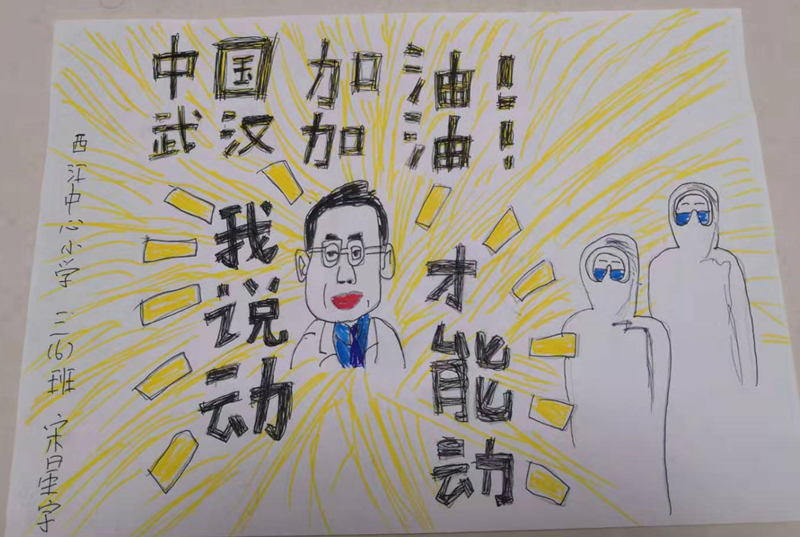 中国 加油！
武汉加油！
我说动
才能动
西 中心小学 (6)班 宋